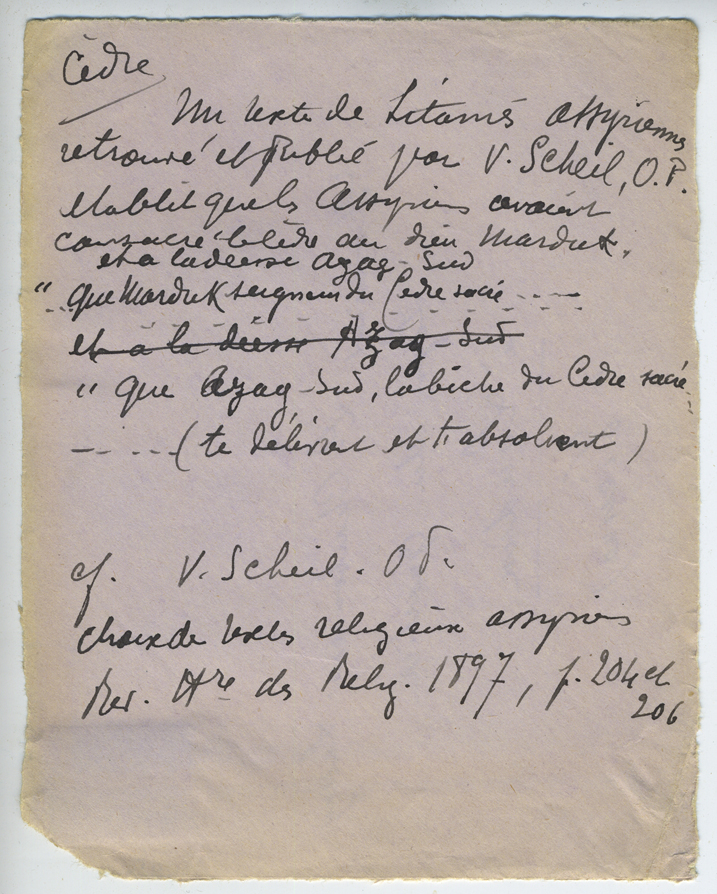 Cèdre
Un texte de Litanies assyriennes
retrouvé et publié par V. Scheil, O.P.
établit que les Assyriens avaient
consacré le cèdre au dieu Marduk,
et à la déesse Azag-Sud
" que Marduk seigneur du Cèdre sacré .....
et à la déesse Azag-Sud
" que Azag-Sud, la biche du Cèdre sacré
..... (te délivrent et t'absolvent)
cf. V. Scheil. O P.
choix de textes religieux assyriens
Rev. Hre des Relig. 1897, p. 204 et
206